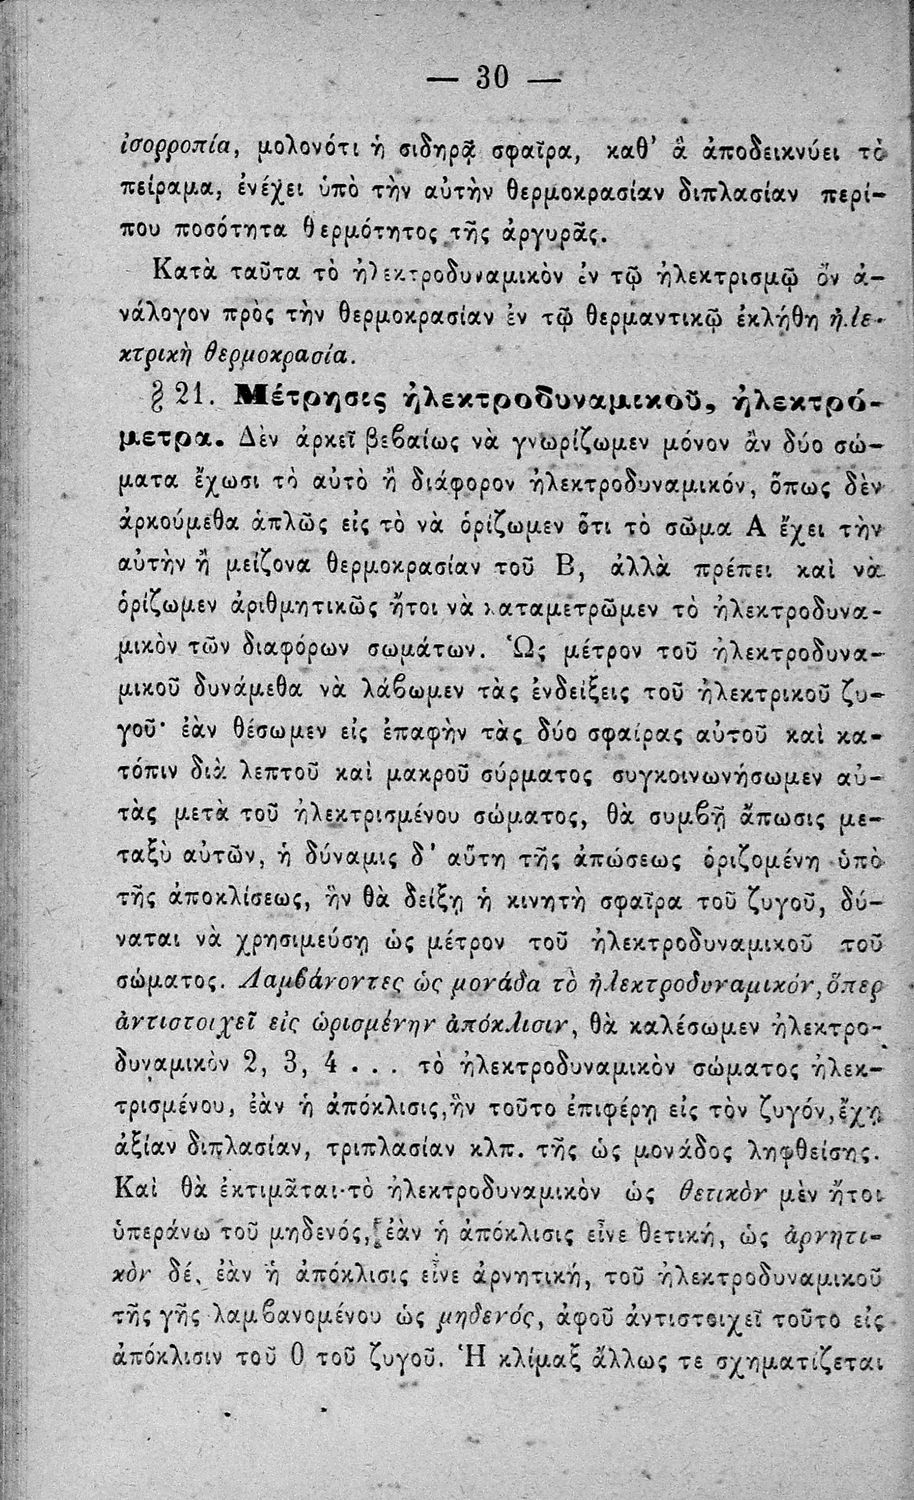 — 30 —
ἰσορροπία, μολονότι ἡ σιδηρᾶ σφαῖρα, καθ’ ἃ ἀποδεικνύει τὸ
πείραμα, ἐνέχει ὑπὸ τὴν αὐτὴν θερμοκρασίαν διπλασίαν περί-
που ποσότητα θερμότητος τῆς ἀργυρᾶς.
Κατὰ ταῦτα τὸ ἠλεκτροδυναμικὸν ἐν τῷ ἠλεκτρισμῷ ὂν ἀ-
νάλογον πρὸς τὴν θερμοκρασίαν ἐν τῷ θερμαντικῷ ἐκλήθη ἠλε-
κτρικὴ θερμοκρασία.
§ 21. Μέτρησις ἠλεκτροδυναμικοῦ, ἠλεκτρό-
μετρα. Δὲν ἀρκεῖ βεβαίως νὰ γνωρίζωμεν μόνον ἂν δύο σώ-
ματα ἔχωσι τὸ αὐτὸ ἢ διάφορον ἠλεκτροδυναμικόν, ὅπως δὲν
ἀρκούμεθα ἁπλῶς εἰς τὸ νὰ ὁρίζωμεν ὅτι τὸ σῶμα Α ἔχει τὴν
αὐτὴν ἢ μείζονα θερμοκρασίαν τοῦ Β, ἀλλὰ πρέπει καὶ νὰ
ὁρίζωμεν ἀριθμητικῶς ἤτοι νὰ καταμετρῶμεν τὸ ἠλεκτροδυνα-
μικὸν τῶν διαφόρων σωμάτων. Ὡς μέτρον τοῦ ἠλεκτροδυνα-
μικοῦ δυνάμεθα νὰ λάβωμεν τὰς ἐνδείξεις τοῦ ἠλεκτρικοῦ ζυ-
γοῦ· ἐὰν θέσωμεν εἰς ἐπαφὴν τὰς δύο σφαίρας αὐτοῦ καὶ κα-
τόπιν διὰ λεπτοῦ καὶ μακροῦ σύρματος συγκοινωνήσωμεν αὐ-
τὰς μετὰ τοῦ ἠλεκτρισμένου σώματος, θὰ συμβῇ ἄπωσις με-
ταξὺ αὐτῶν, ἡ δύναμις δ’ αὕτη τῆς ἀπώσεως ὁριζομένη ὑπὸ
τῆς ἀποκλίσεως, ἣν θὰ δείξῃ ἡ κινητὴ σφαῖρα τοῦ ζυγοῦ, δύ-
ναται νὰ χρησιμεύσῃ ὡς μέτρον τοῦ ἠλεκτροδυναμικοῦ τοῦ
σώματος. Λαμβάνοντες ὡς μονάδα τὸ ἠλεκτροδυναμικόν, ὅπερ
ἀντιστοιχεῖ εἰς ὡρισμένην ἀπόκλισιν, θὰ καλέσωμεν ἠλεκτρο-
δυναμικὸν 2, 3, 4 . . . τὸ ἠλεκτροδυναμικὸν σώματος ἠλεκ-
τρισμένου, ἐὰν ἡ ἀπόκλισις, ἣν τοῦτο ἐπιφέρῃ εἰς τὸν ζυγόν, ἔχῃ
ἀξίαν διπλασίαν, τριπλασίαν κλπ. τῆς ὡς μονάδος ληφθείσης.
Καὶ θὰ ἐκτιμᾶται τὸ ἠλεκτροδυναμικὸν ὡς θετικὸν μὲν ἤτοι
ὑπεράνω τοῦ μηδενός, ἐὰν ἡ ἀπόκλισις εἶνε θετική, ὡς ἀρνητι-
κὸν δέ, ἐὰν ἡ ἀπόκλισις εἶνε ἀρνητική, τοῦ ἠλεκτροδυναμικοῦ
τῆς γῆς λαμβανομένου ὡς μηδενός, ἀφοῦ ἀντιστοιχεῖ τοῦτο εἰς
ἀπόκλισιν τοῦ 0 τοῦ ζυγοῦ. Ἡ κλίμαξ ἄλλως τε σχηματίζεται